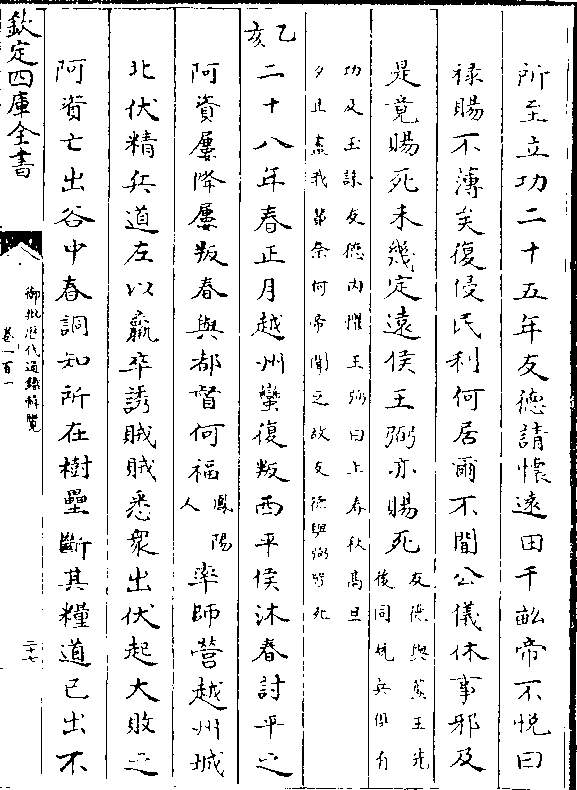 所至立功二十五年友德請懷遠田千畝帝不悅曰
祿賜不薄矣復侵民利何居爾不聞公儀休事邪及
是竟賜死未幾定遠侯王弼亦賜死
友德與藍玉先
後同總兵俱有
功及玉誅友德內懼王弼曰上春秋高旦
夕且盡我輩奈何帝聞之故友德與弼皆死
乙亥
二十八年春正月越州蠻復叛西平侯沐春討平之
阿資屢降屢叛春與都督何福
鳳陽
人
率師營越州城
北伏精兵道左以羸卒誘賊賊悉衆出伏起大敗之
阿資亡出谷中春詗知所在樹壘斷其糧道已出不
欽定四庫全書
御批歷代通鑑輯覽
卷一百一
二十七